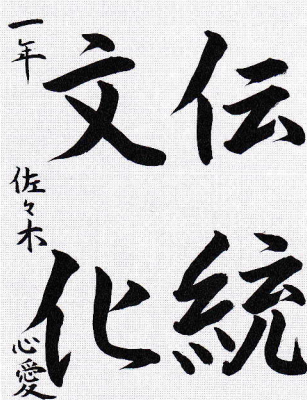 伝統
文化
一年 佐々木 心愛